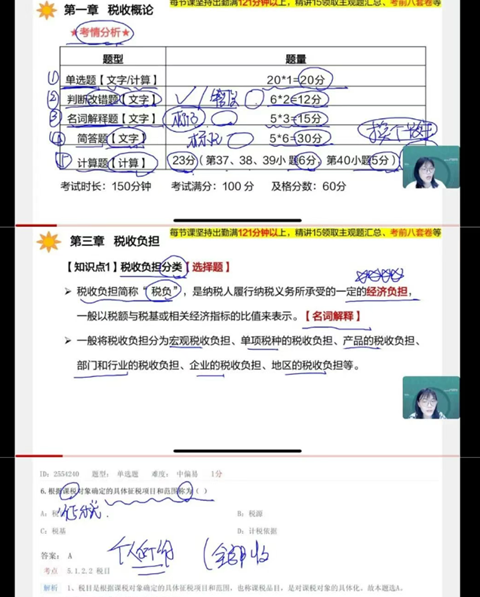 第一章 税收概论
每节课坚持出勤满121分钟以上，精讲15领取主观题汇总、考前八套卷等
★考情分析★
题型 题量
① 单选题【文字/计算】 20*1=20分
② 判断改错题【文字】 6*2=12分
③ 名词解释题【文字】 5*3=15分
简答题【文字】 5*6=30分
计算题【计算】 23分（第37、38、39小题6分，第40小题5分）
考试时长：150分钟 考试满分：100 分 及格分数：60分
第三章 税收负担
每节课坚持出勤满121分钟以上，精讲15领取主观题汇总、考前八套卷等
【知识点1】税收负担分类【选择题】
➢ 税收负担简称“税负”，是纳税人履行纳税义务所承受的一定的经济负担，
一般以税额与税基或相关经济指标的比值来表示。【名词解释】
➢ 一般将税收负担分为宏观税收负担、单项税种的税收负担、产品的税收负担、
部门和行业的税收负担、企业的税收负担、地区的税收负担等。
ID：2554240 题型：单选题 难度：中偏易 1分
6.根据课税对象确定的具体征税项目和范围称为（ ）
A：税 B：税源
C：税基 D：计税依据
答案： A
考点 5.1.2.2 税目
解析 1、税目是根据课税对象确定的具体征税项目和范围，也称课税品目，是对课税对象的具体化。故本题选A。